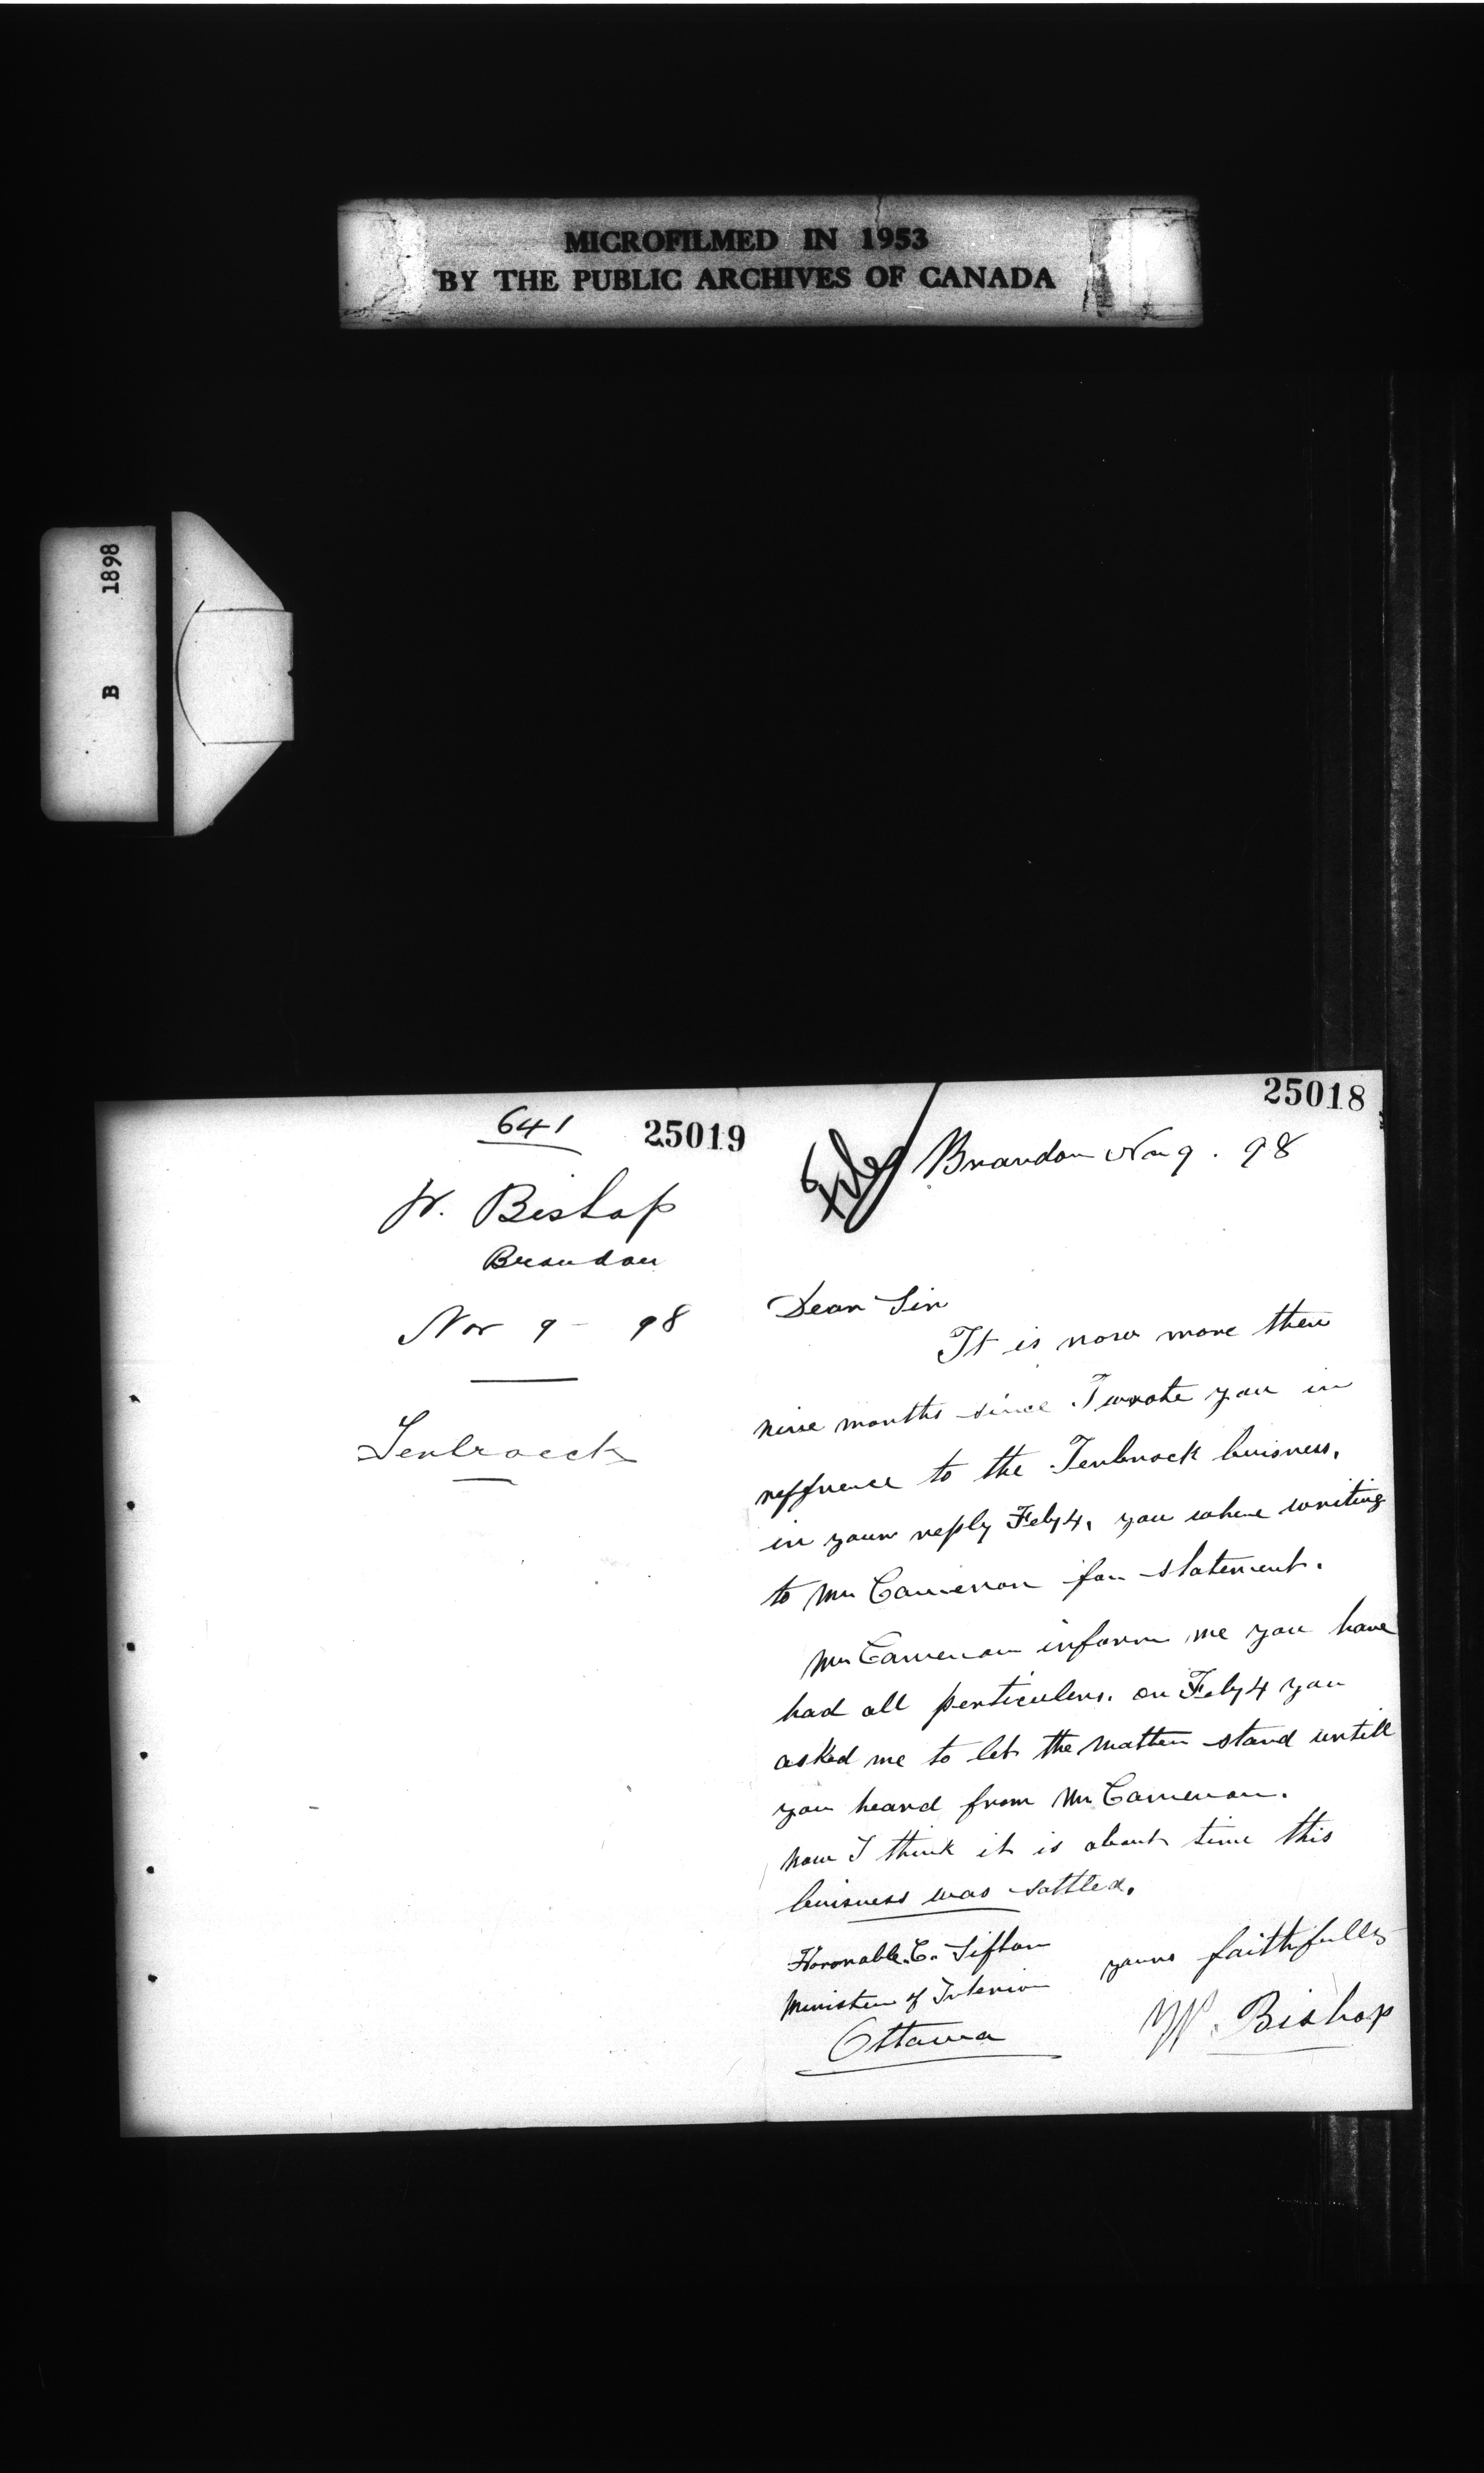 MICROFILMED IN 1953
BY THE PUBLIC ARCHIVES OF CANADA
B 1898
641
25019
W. Bishop
Brandon
Nov 9 - 98
Tenbroeck
25018
File
Brandon Nov 9. 98
Dear Sir
It is now more then
nine months since I wrote you in
reffrence to the Tenbrock buisness.
in your reply Feby 4, you where writing
to Mr Cameron for statement.
Mr Cameron inform me you have
had all perticulers. on Feby 4 you
asked me to let the matter stand untill
you heard from Mr Cameron.
now I think it is about time this
buisness was sattled.
Honorable. C. Sifton
Minister of Interior
Ottawa
yours faithfully
W. Bishop